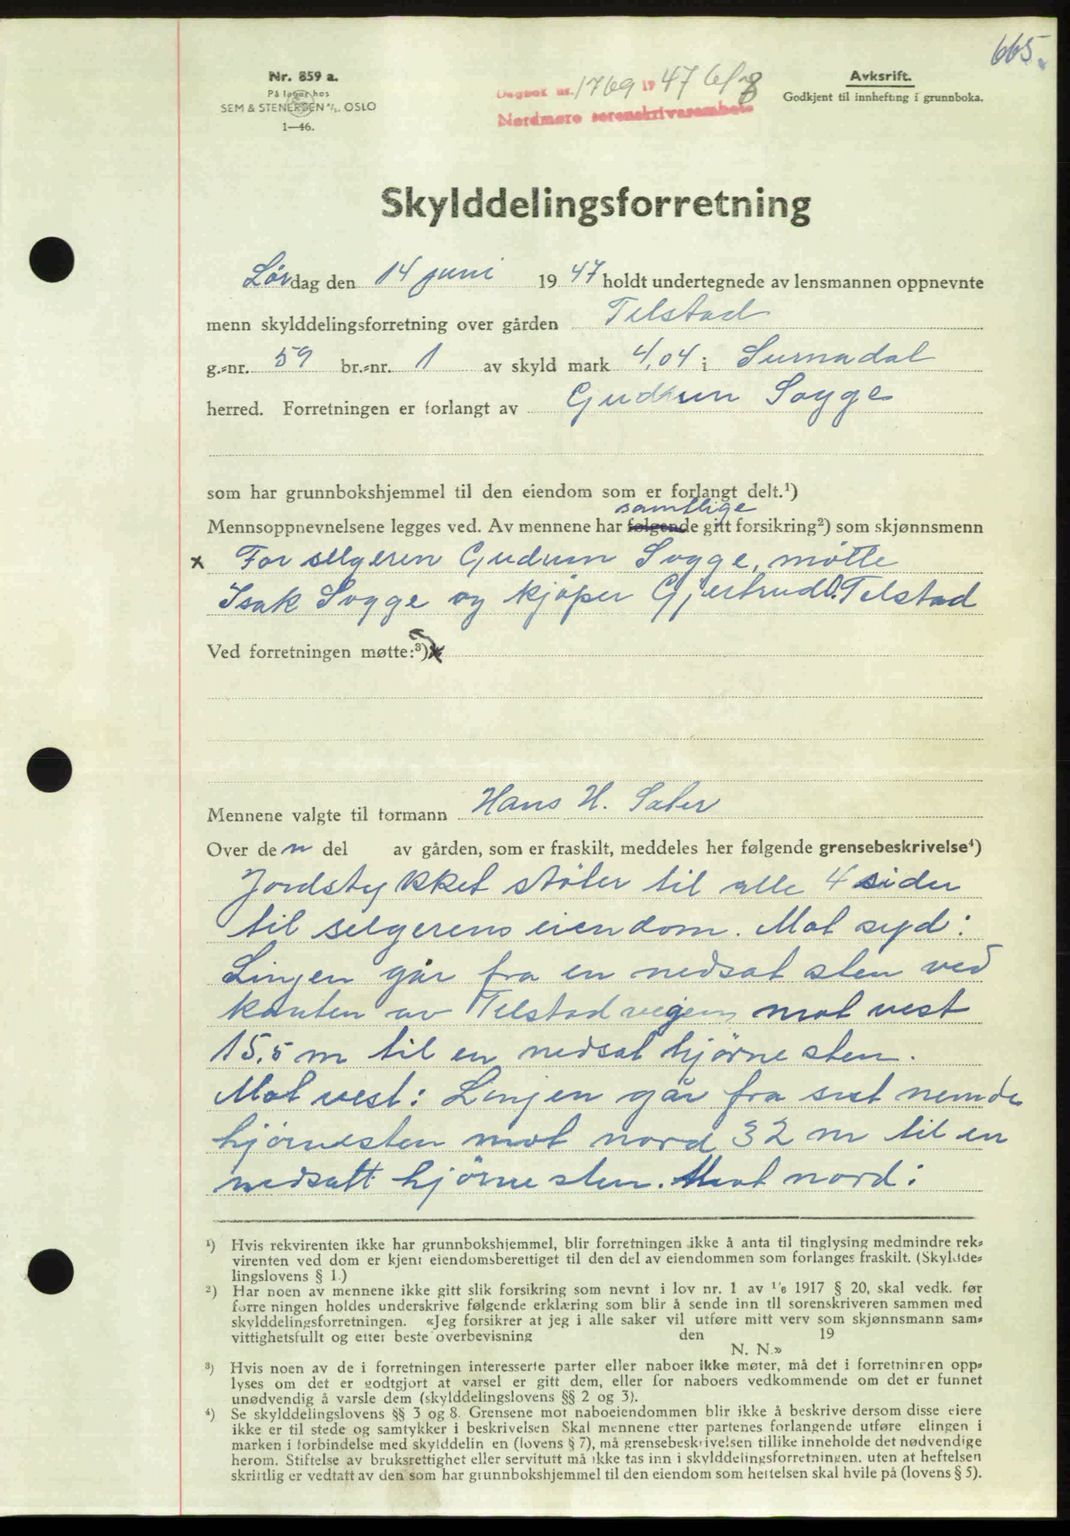 665.
Nr. 859 a.
På lager hos
SEM & STENERSEN A/S. OSLO
1—46.
Dagbok nr. 1769 19 47
Nordmøre sorenskriverembete
Avksrift.
Godkjent til innhefting i grunnboka.
Skylddelingsforretning
Lørdag den 14 juni 1947 holdt undertegnede av lensmannen oppnevnte
menn skylddelingsforretning over gården Telstad
g.-nr. 59 br.-nr. 1 av skyld mark 4,04 i Surnadal
herred. Forretningen er forlangt av Gudrun Sogge
som har grunnbokshjemmel til den eiendom som er forlangt delt.¹)
samtlige
Mennsoppnevnelsene legges ved. Av mennene har følgende gitt forsikring²) som skjønnsmenn
x For selgeren Gudrun Sogge, møtte
Isak Sogge og kjøper Gjertrud O. Telstad
Ved forretningen møtte:³) x
Mennene valgte til formann Hans H. Sæter
Over den del av gården, som er fraskilt, meddeles her følgende grensebeskrivelse⁴)
Jordstykket støter til alle 4 sider
til selgerens eiendom. Mot syd:
Linjen går fra en nedsat sten ved
kanten av Telstadvegen mot vest
15,5 m til en nedsat hjørnesten.
Mot vest: Linjen går fra sist nemde
hjørnesten mot nord 32 m til en
nedsatt hjørnesten. Mot nord:
¹) Hvis rekvirenten ikke har grunnbokshjemmel, blir forretningen ikke å anta til tinglysing medmindre rek-
virenten ved dom er kjent eiendomsberettiget til den del av eiendommen som forlanges fraskilt. (Skyldde-
lingslovens § 1.)
²) Har noen av mennene ikke gitt slik forsikring som nevnt i lov nr. 1 av 1/6 1917 § 20, skal vedk. før
forretningen holdes underskrive følgende erklæring som blir å sende inn til sorenskriveren sammen med
skylddelingsforretningen. «Jeg forsikrer at jeg i alle saker vil utføre mitt verv som skjønnsmann sam-
vittighetsfullt og etter beste overbevisning den 19
N. N.»
³) Hvis noen av de i forretningen interesserte parter eller naboer ikke møter, må det i forretningen opp-
lyses om det er godtgjort at varsel er gitt dem, eller for naboers vedkommende om det er funnet
unødvendig å varsle dem (skylddelingslovens §§ 2 og 3).
⁴) Se skylddelingslovens §§ 3 og 8. Grensene mot naboeiendommen blir ikke å beskrive dersom disse eiere
ikke er til stede og samtykker i beskrivelsen Skal mennene etter partenes forlangende utføre elingen i
marken i forbindelse med skylddelin en (lovens § 7), må grensebeskrivelsen tillike inneholde det nødvendige
herom. Stiftelse av bruksrettighet eller servitutt må ikke tas inn i skylddelingsforretningen. uten at heftelsen
skriftlig er vedtatt av den som har grunnbokshjemmel til den eiendom som heftelsen skal hvile på (lovens § 5).